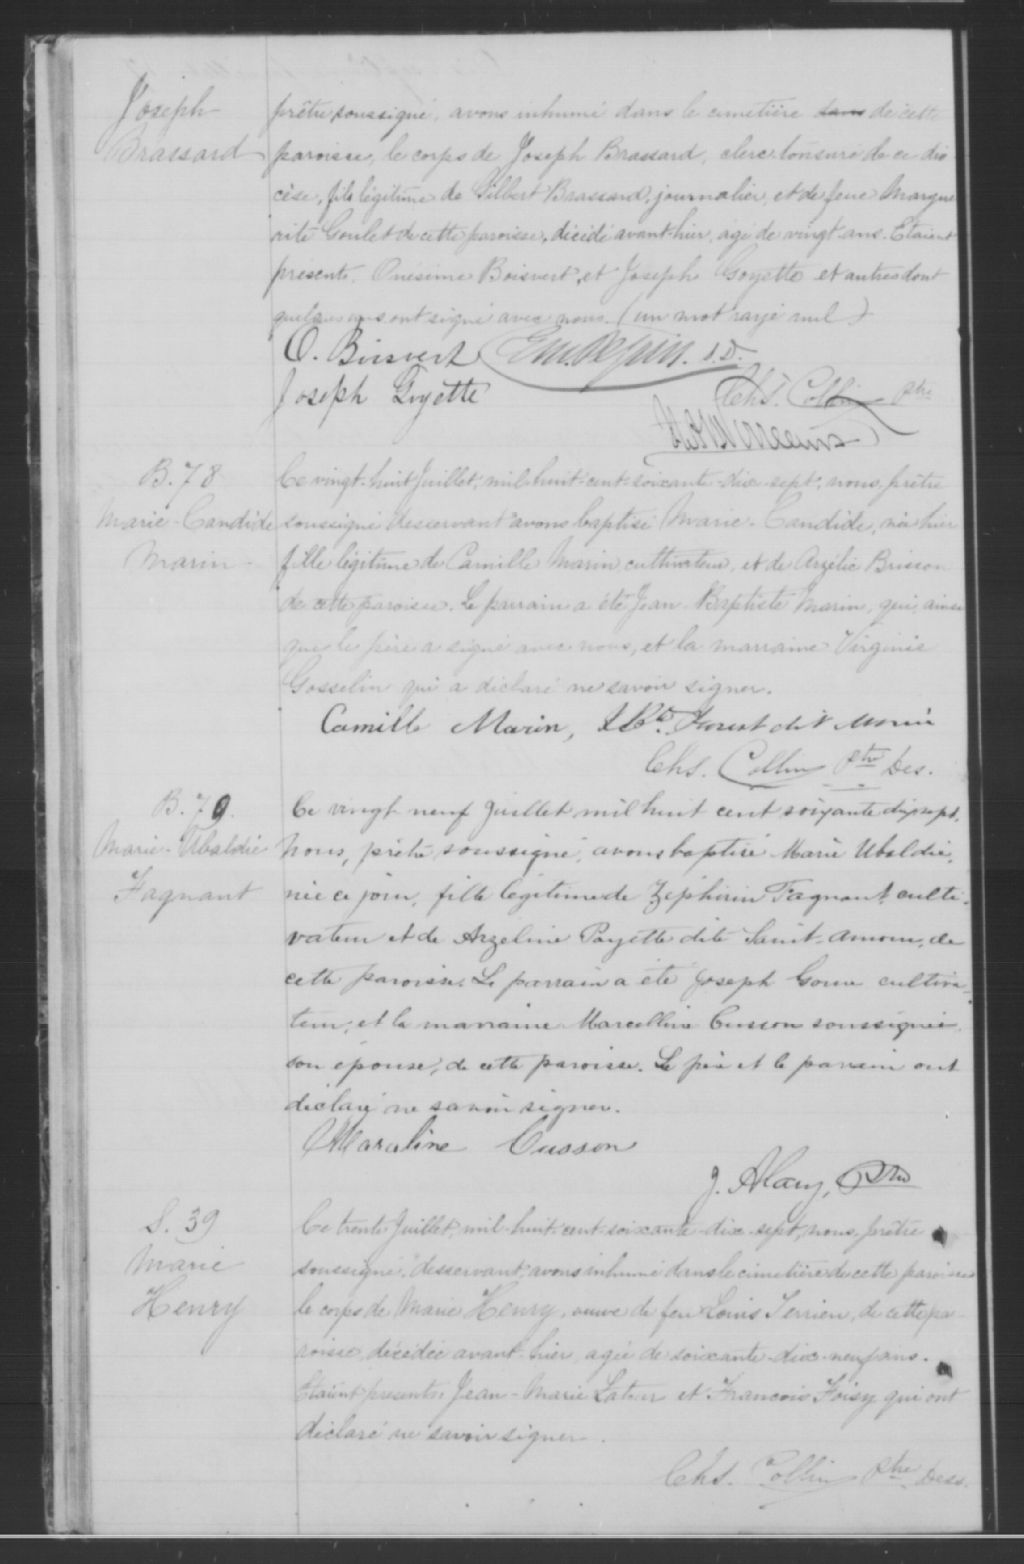 Joseph
Brassard
prêtre soussigné, avons inhumé dans le cimetière dans de cette
paroisse, le corps de Joseph Brassard, clerc tonsuré de ce dio
cèse, fils légitime de Gilbert Brassard, journalier, et de feue Margue
rite Goulet de cette paroisse, décédé avant-hier, agé de vingt ans. Etaient
présents. Onésime Boisvert, et Joseph Goyette et autres dont
quelques uns ont signé avec nous. (un mot rayé nul)
O. Boisvert
Joseph Goyette
Chs. Collin Ptre
B. 78
Marie-Candide
Marin
Ce vingt-huit Juillet, mil-huit-cent-soixante-dix-sept, nous, prêtre
soussigné desservant avons baptisé Marie-Candide, née hier
fille légitime de Camille Marin, cultivateur, et de Arzélie Brisson
de cette paroisse. Le parrain a été Jean-Baptiste Marin, qui, ainsi
que le père a signé avec nous, et la marraine Virginie
Gosselin qui a déclaré ne savoir signer.
Camille Marin, J Bte. dit Morin
Chs. Collin Ptre Des.
B. 79.
Marie-Ubaldie
Fagnant
Ce vingt-neuf Juillet mil huit cent soixante dixsept,
Nous, prêtre soussigné, avons baptisé Marie Ubaldie,
née ce jour, fille légitime de Zéphirin Fagnant, culti-
vateur et de Arzeline Payette dite Saint-Amour, de
cette paroisse. Le parrain a été Joseph cultiva-
teur, et la marraine Marcelline Cusson soussignée
son épouse, de cette paroisse. Le père et le parrain ont
déclaré ne savoir signer.
Marceline Cusson
J. Alary, Ptre
S. 39
Marie
Henry
Ce trente Juillet, mil-huit-cent-soixante-dix-sept, nous, prêtre
soussigné, desservant, avons inhumé dans le cimetière de cette paroisse
le corps de Marie Henry, veuve de feu Louis Terrien, de cette pa-
roisse, décédée avant-hier, agée de soixante-dix-neuf ans.
Etaient présents Jean-Marie Latour et Francois Foisy qui ont
déclaré ne savoir signer.
Chs. Collin Ptre Dess.